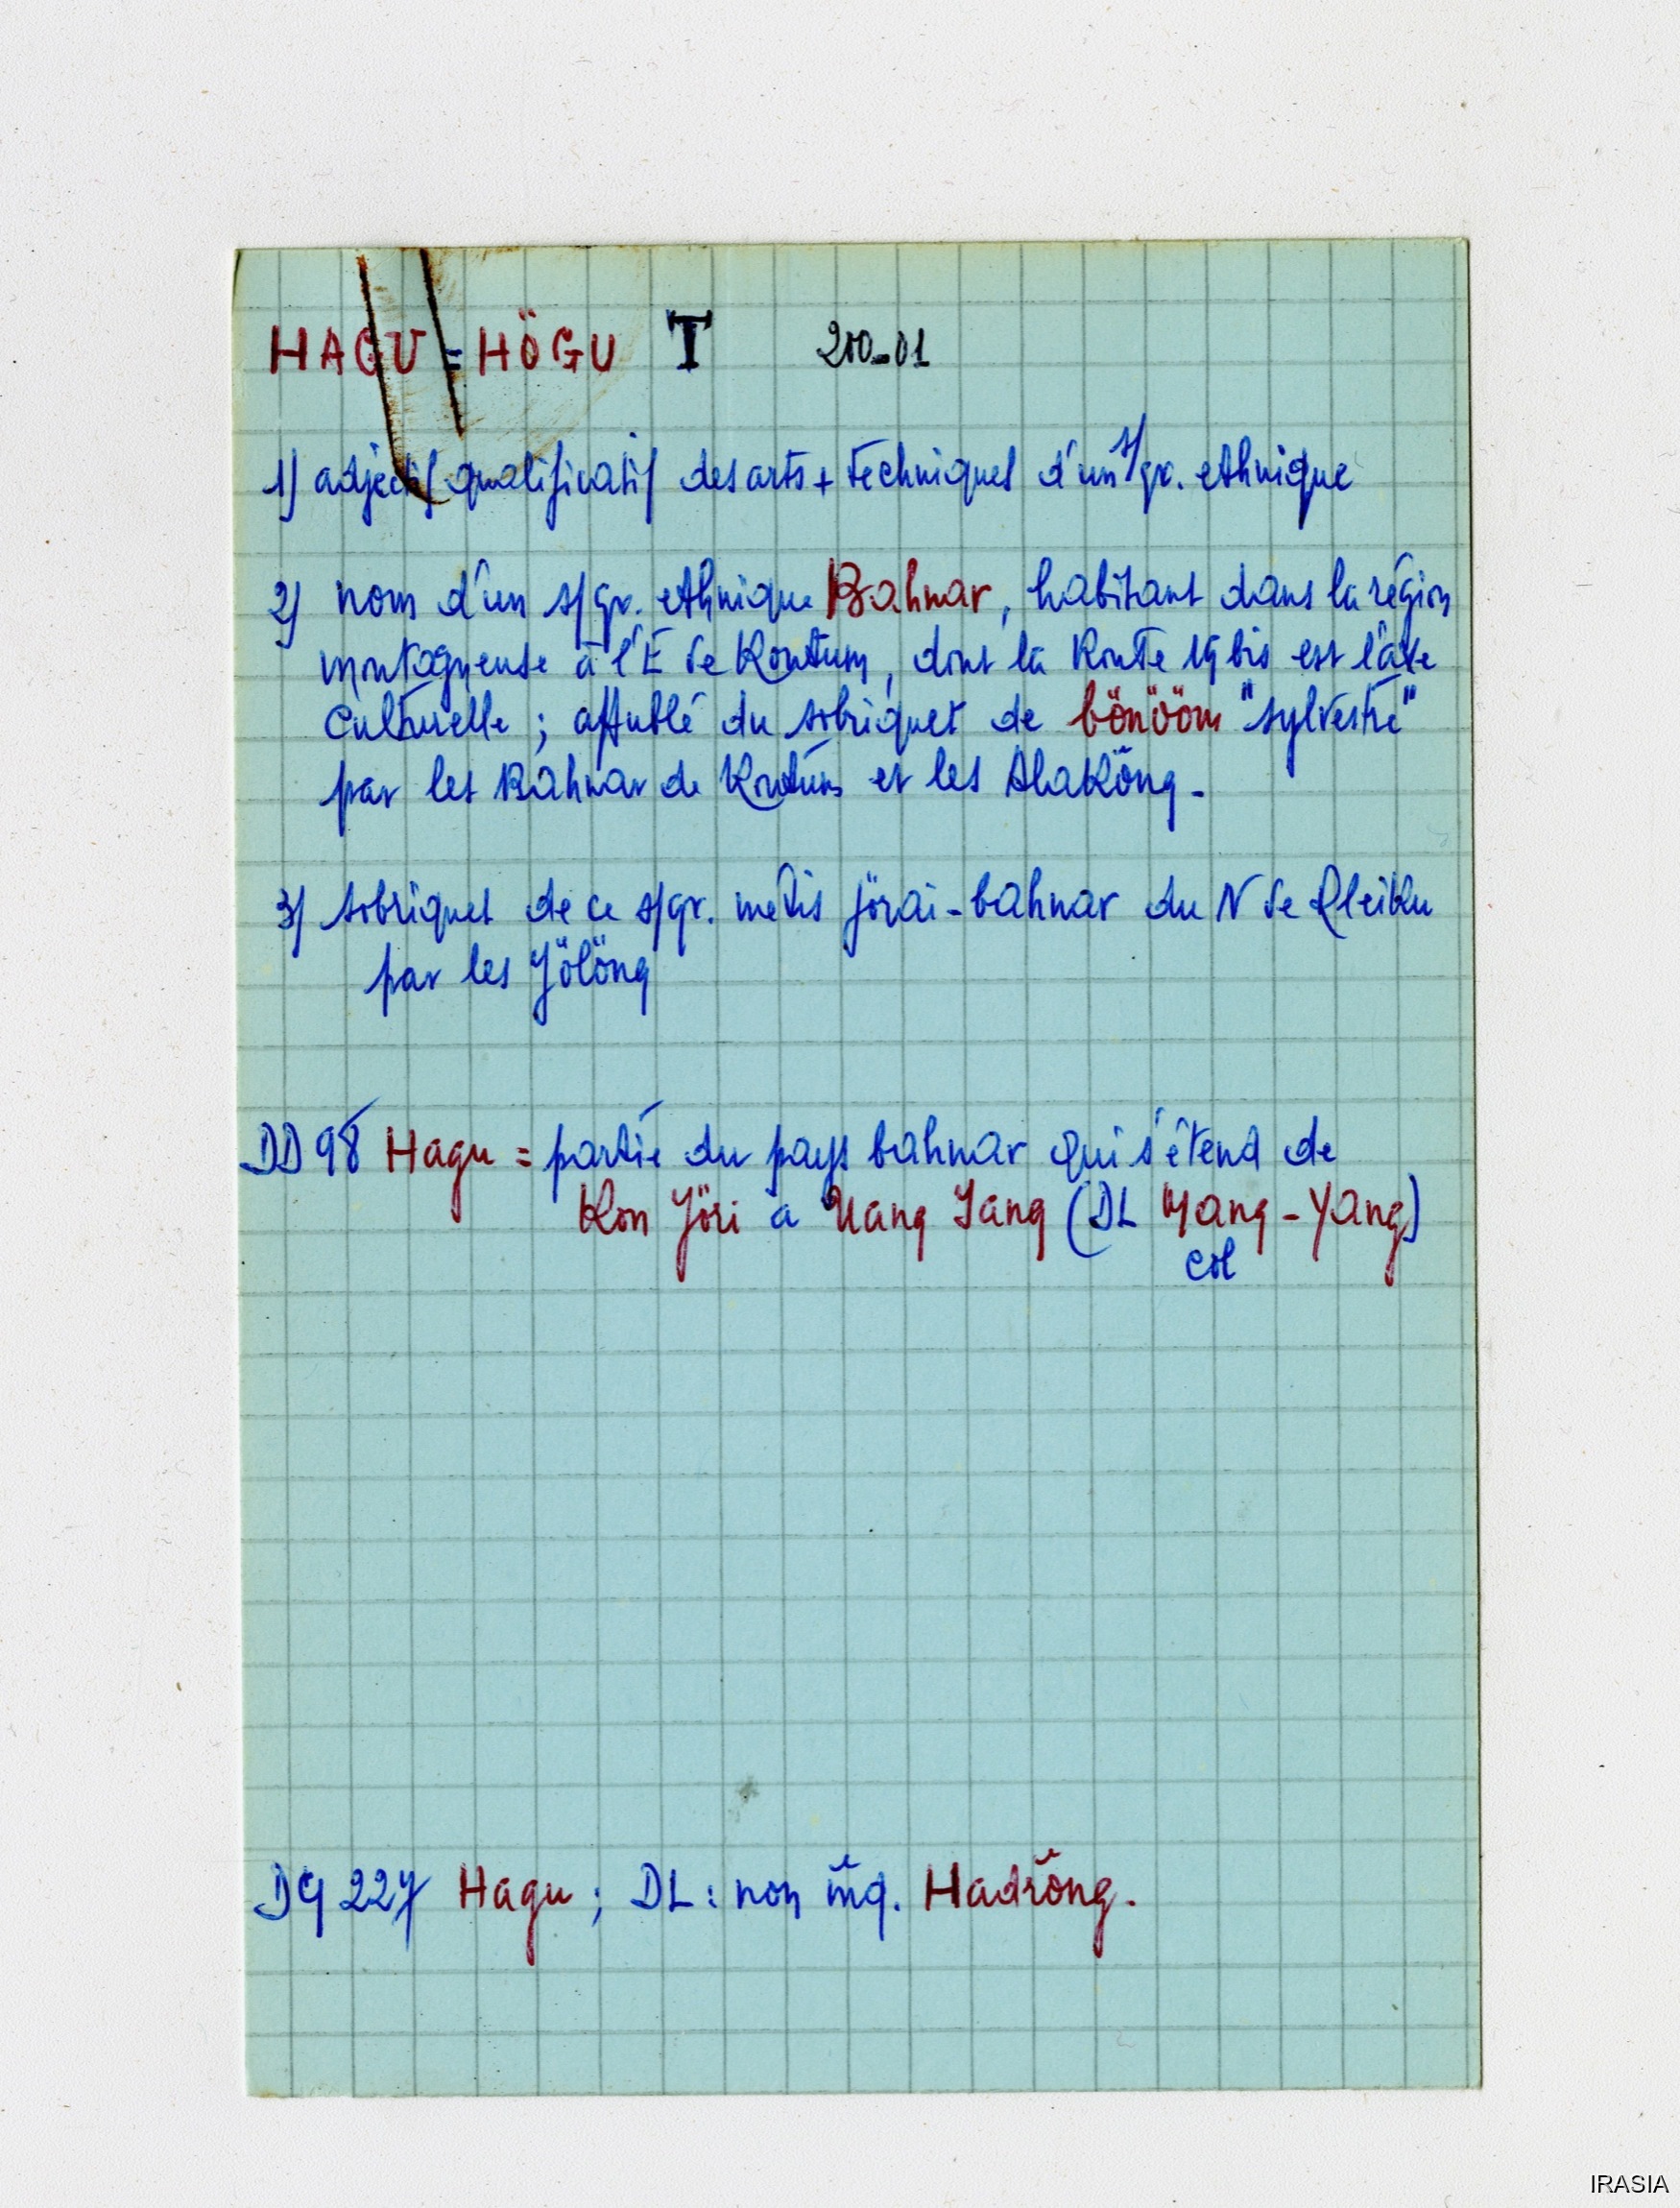 HAGU = HÖGU T 200-01
1) adjectif qualificatif des arts + techniques d'un s/gr. ethnique
2) nom d'un s/gr. ethnique Bahnar, habitant dans la région
montagneuse à l'E de Kontum, dont la Route 19 bis est l'axe
culturelle ; affublé du sobriquet de bönööm "sylvestre"
par les Bahnar de Kontum et les AlaKöng -
3) sobriquet de ce s/gr. métis Jörai-bahnar du N de Pleiku
par les Jölöng
DD 98 Hagu = partie du pays bahnar qui s'étend de
Kon Jöri à Mang Jang (DL Mang - Yang)
col
227 Hagu ; DL : non mq. Hadrŏng.
IRASIA